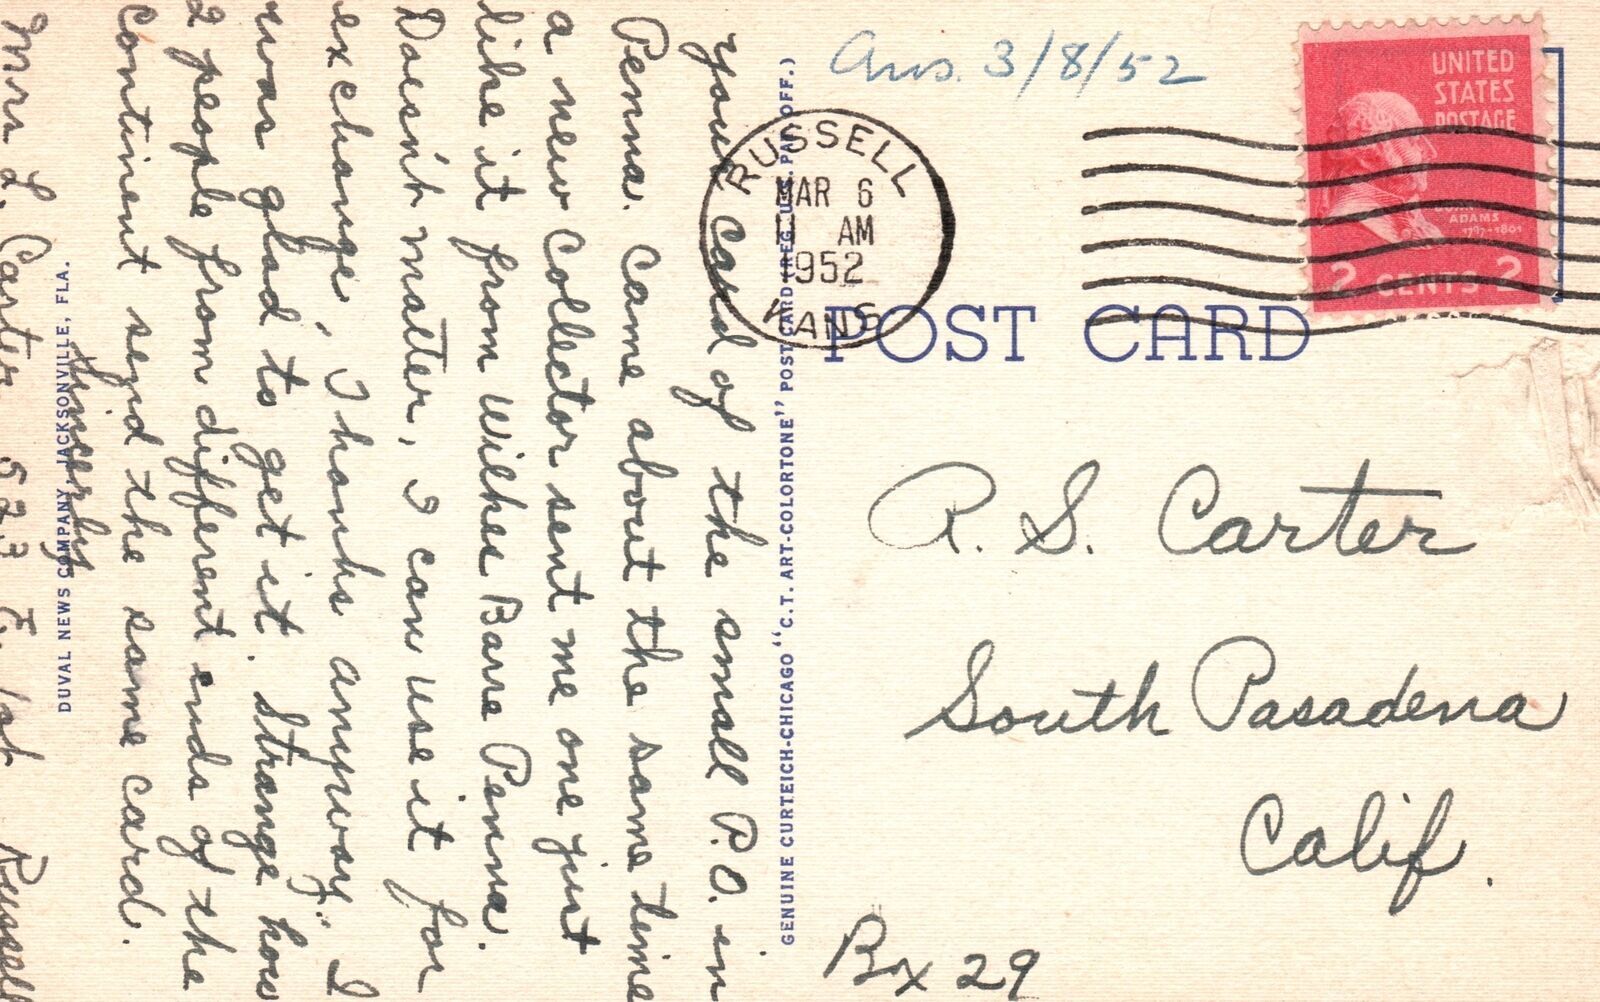 your card of the small P.O. in
Penna. came about the same time
a new collector sent me one just
like it from Wilkes Barre Penna.
Doesn't matter, I can use it for
exchange, Thanks anyway. I
was glad to get it. Strange how
2 people from different ends of the
continent send the same card.
Sincerly
Mrs L. Carter 523 E. 1st Russell
DUVAL NEWS COMPANY, JACKSONVILLE, FLA.
GENUINE CURTEICH-CHICAGO "C.T. ART-COLORTONE" POST CARD (REG. U.S. PAT. OFF.)
Ans. 3/8/52
RUSSELL
MAR 6
11 AM
1952
KANS
UNITED
STATES
POSTAGE
JOHN
ADAMS
1797-1801
2 CENTS 2
POST CARD
R. S. Carter
South Pasadena
Calif.
Bx 29